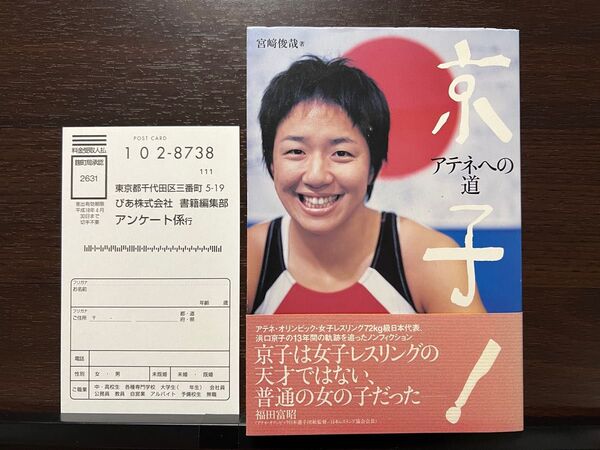 料金受取人払
麹町局承認
2631
差出有効期限
平成18年4月
30日まで
切手不要
POST CARD
102-8738
111
東京都千代田区三番町 5-19
ぴあ株式会社 書籍編集部
アンケート係行
フリガナ
お名前
年齢 歳
フリガナ
ご住所 〒 - 都・道 府・県
電話
性別 女・男 未既婚 未婚・既婚
ご職業 中・高校生 各種専門学校 大学生( 年生) 会社員
公務員 教員 自営業 アルバイト 予備校生 無職
宮﨑俊哉 著
京子!
アテネへの
道
アテネ・オリンピック・女子レスリング72kg級日本代表、
浜口京子の13年間の軌跡を追ったノンフィクション
京子は女子レスリングの
天才ではない、
普通の女の子だった
福田富昭
(アテネ・オリンピック日本選手団総監督/日本レスリング協会会長)